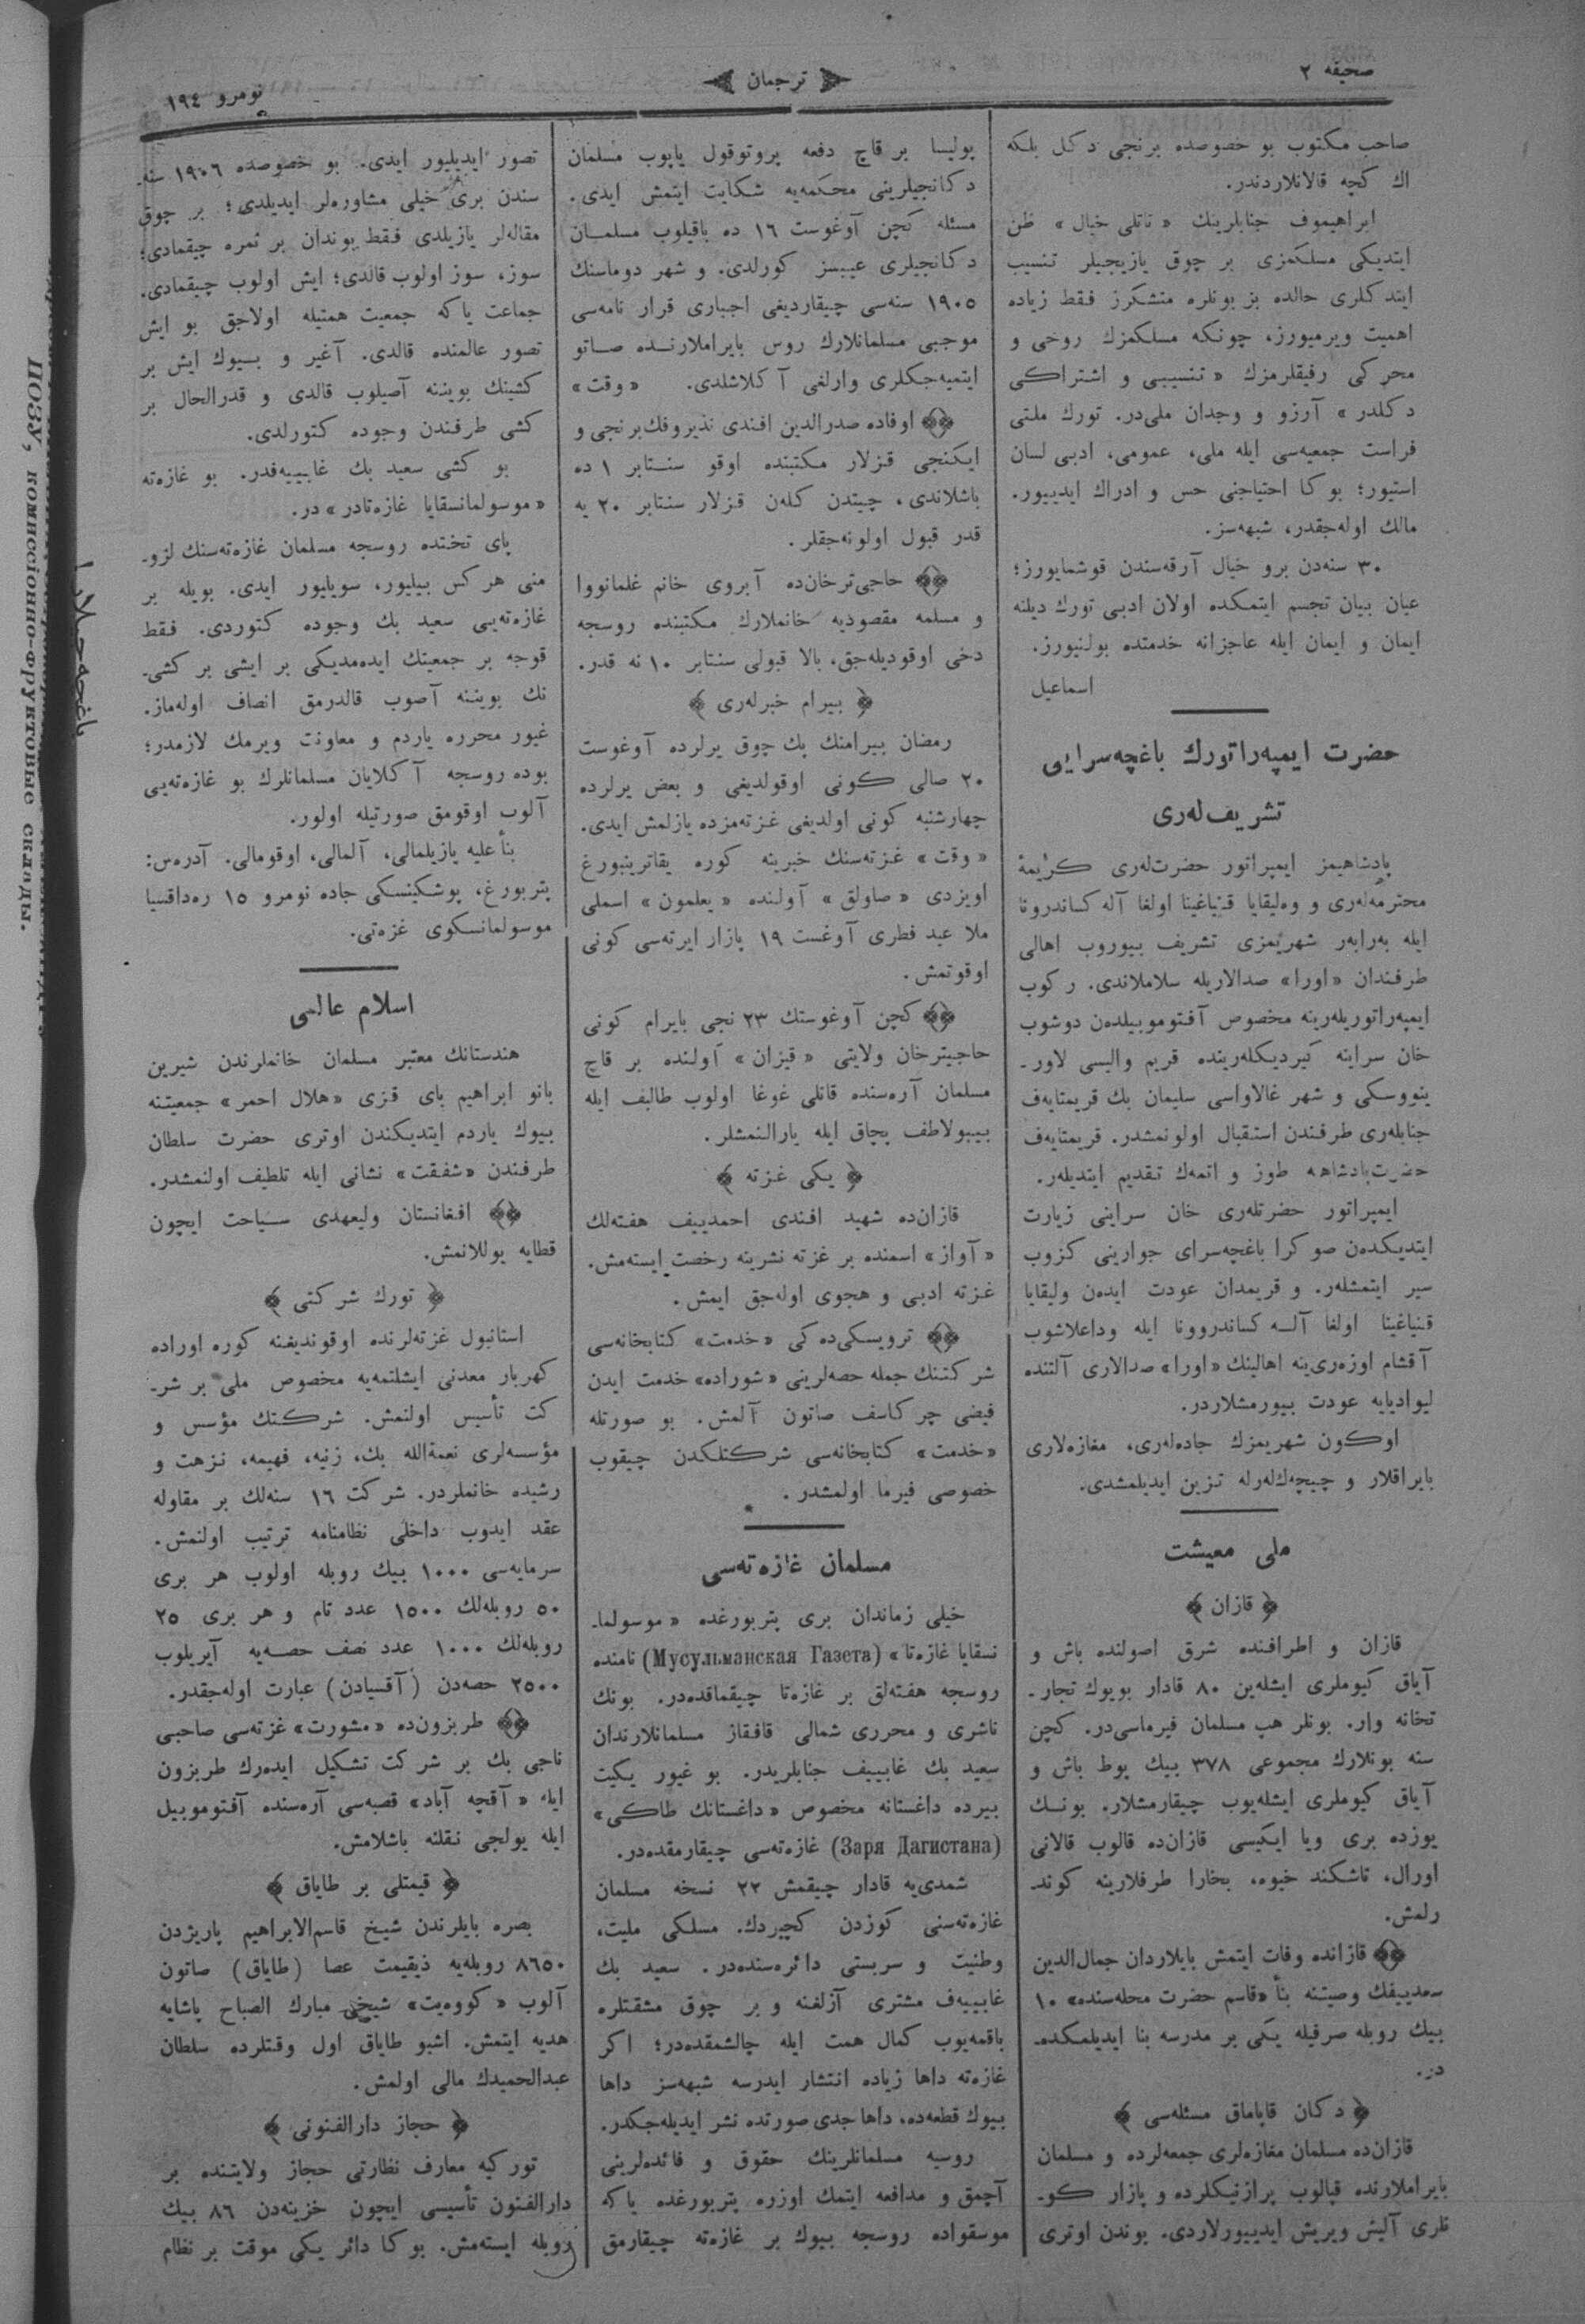 صحیفه ٢
ترجمان
نومرو ١٩٤
صاحب مکتوب بو خصوصده برنجی دکل بلکه
اك کچه قالانلاردندر.
ابراهیموف جنابلرینك «تاتلی خیال» ظن
ایتدیکی مسلکمزی بر چوق یازیجیلر تنسیب
ایتدکلری حالده بز بونلره متشکرز فقط زیاده
اهمیت ویرمیورز، چونکه مسلکمزك روحی و
محرکی رفیقلرمزك «تنسیبی و اشتراکی
دکلدر» آرزو و وجدان ملی‌در. تورك ملتی
فراست جمعیه‌سی ایله ملی، عمومی، ادبی لسان
استیور؛ بوکا احتیاجنی حس و ادراك ایدییور.
مالك اوله‌جقدر، شبهه‌سز.
٣٠ سنه‌دن برو خیال آرقه‌سندن قوشمایورز؛
عیان بیان تجسم ایتمکده اولان ادبی تورك دیلنه
ایمان و ایمان ایله عاجزانه خدمتده بولنیورز.
اسماعیل
حضرت ایمپه‌راتورك باغچه‌سرایی
تشریف‌له‌ری
پادشاهیمز ایمپراتور حضرت‌له‌ری کریمهٔ
محترمه‌له‌ری و وه‌لیقایا قنیاغینا اولغا آله‌کساندرونا
ایله به‌رابه‌ر شهریمزی تشریف بیوروب اهالی
طرفندان «اورا» صدالاریله سلاملاندی. رکوب
ایمپه‌راتوریله‌رینه مخصوص آفتوموبیلده‌ن دوشوب
خان سراینه کیردیکله‌رینده قریم والیسی لاور-
ینووسکی و شهر غالاواسی سلیمان بك قریمتایه‌ف
جنابله‌ری طرفندن استقبال اولونمشدر. قریمتایه‌ف
حضرت پادشاهه طوز و اتمه‌ك تقدیم ایتدیله‌ر.
ایمپراتور حضرتله‌ری خان سراینی زیارت
ایتدیکده‌ن صوکرا باغچه‌سرای جوارینی کزوب
سیر ایتمشله‌ر. و قریمدان عودت ایده‌ن ولیقایا
قنیاغینا اولغا آلـه‌کساندروونا ایله وداعلاشوب
آقشام اوزه‌ری‌ینه اهالینك «اورا» صدالاری آلتنده
لیوادیایه عودت بیورمشلاردر.
اوکون شهریمزك جاده‌له‌ری، مغازه‌لاری
بایراقلار و چیچه‌ك‌له‌رله تزین ایدیلمشدی.
ملی معیشت
﴿ قازان ﴾
قازان و اطرافنده شرق اصولنده باش و
آیاق کیوملری ایشله‌ین ٨٠ قادار بویوك تجار-
تخانه وار. بونلر هپ مسلمان فیرماسی‌در. کچن
سنه بونلارك مجموعی ٣٧٨ بیك پوط باش و
آیاق کیوملری ایشله‌یوب چیقارمشلار. بونـك
یوزده بری ویا ایکیسی قازان‌ده قالوب قالانی
اورال، تاشکند خیوه، بخارا طرفلارینه کوند-
رلمش.
قازانده وفات ایتمش بایلاردان جمال‌الدین
سعدییفك وصیتنه بنأ «قاسم حضرت محله‌سنده» ١٠
بیك روبله صرفیله یکی بر مدرسه بنا ایدیلمکده-
در.
﴿ دکان قاپاماق مسئله‌سی ﴾
قازان‌ده مسلمان مغازه‌لری جمعه‌لرده و مسلمان
بایراملارنده قپالوب پرازنیکلرده و پازار کو-
نلری آلیش ویریش ایدییورلاردی. بوندن اوتری
پولیسا بر قاچ دفعه پروتوقول یاپوب مسلمان
دکانجیلرینی محکمه‌یه شکایت ایتمش ایدی.
مسئله کچن آوغوست ١٦ ده باقیلوب مسلمـان
دکانجیلری عیبسز کورلدی. و شهر دوماسنك
١٩٠٥ سنه‌سی چیقاردیغی اجباری قرار نامه‌سی
موجبی مسلمانلارك روس بایراملارنـده صـاتو
ایتمیه‌جکلری وارلغی آکلاشلدی. «وقت»
اوفاده صدرالدین افندی نذیروفك برنجی و
ایکنجی قزلار مکتبنده اوقو سنـتابر ١ ده
باشلاندی، چیتدن کله‌ن قزلار سنتابر ٢٠ یه
قدر قبول اولونه‌جقلر.
حاجی‌ترخان‌ده آبروی خانم غلمانووا
و مسلمه مقصودیه خانملارك مکتبنده روسجه
دخی اوقودیله‌جق، بالا قبولی سنتابر ١٠ نه قدر.
﴿ بیرام خبرله‌ری ﴾
رمضان بیرامنك پك چوق یرلرده آوغوست
٢٠ صالی کونی اوقولدیغی و بعض یرلرده
چهارشنبه کونی اولدیغی غزته‌مزده یازلمش ایدی.
«وقت» غزته‌سنك خبرینه کوره یقاترینبورغ
اویزدی «صاولق» آولنده «یعلمون» اسملی
ملا عید فطری آوغست ١٩ پازار ایرته‌سی کونی
اوقوتمش.
کچن آوغوستك ٢٣ نجی بایرام کونی
حاجیترخان ولایتی «قیزان» آولنده بر قاچ
مسلمان آره‌سنده قانلی غوغا اولوب طالیف ایله
بیبولاطف پچاق ایله یارالنمشلر.
﴿ یکی غزته ﴾
قازان‌ده شهید افندی احمدییف هفته‌لك
«آواز» اسمنده بر غزته نشرینه رخصت ایسته‌مش.
غزته ادبی و هجوی اوله‌جق ایمش.
ترویسکی‌ده کی «خدمت» کتابخانه‌سی
شرکتنك جمله حصه‌لرینی «شوراده» خدمت ایدن
فیضی چرکاسف صاتون آلمش. بو صورتله
«خدمت» کتابخانه‌سی شرکتلکدن چیقوب
خصوصی فیرما اولمشدر.
مسلمان غازه‌ته‌سی
خیلی زماندان بری پتربورغده «موسولما-
نسقایا غازه‌تا» (Мусульманская Газета) نامنده
روسجه هفته‌لق بر غازه‌تا چیقماقده‌در. بونك
ناشری و محرری شمالی قافقاز مسلمانلارندان
سعید بك غابییف جنابلریدر. بو غیور یکیت
بیرده داغستانه مخصوص «داغستانك طاکی»
(Заря Дагистана) غازه‌ته‌سی چیقارمقده‌در.
شمدی‌یه قادار چیقمش ٢٢ نسخه مسلمان
غازه‌ته‌سنی کوزدن کچیردك. مسلکی ملیت،
وطنیت و سربستی دائره‌سنده‌در. سعید بك
غابییه‌ف مشتری آزلغنه و بر چوق مشقتلره
باقمه‌یوب کمال همت ایله چالشمقده‌در؛ اکر
غازه‌ته داها زیاده انتشار ایدرسه شبهه‌سز داها
بیوك قطعه‌ده، داها جدی صورتده نشر ایدیله‌جکدر.
روسیه مسلمانلرینك حقوق و فائده‌لرینی
آچمق و مدافعه ایتمك اوزره پتربورغده یاکه
موسقواده روسجه بیوك بر غازه‌ته چیقارمق
تصور ایدیلیور ایدی. بو خصوصده ١٩٠٦ سنه-
سندن بری خیلی مشاوره‌لر ایدیلدی؛ بر چوق
مقاله‌لر یازیلدی فقط بوندان بر ثمره چیقمادی؛
سوز، سوز اولوب قالدی؛ ایش اولوب چیقمادی.
جماعت یاکه جمعیت همتیله اولاجق بو ایش
تصور عالمنده قالدی. آغیر و بـیوك ایش بر
کشینك بویننه آصیلوب قالدی و قدرالحال بر
کشی طرفندن وجوده کتورلدی.
بو کشی سعید بك غابییه‌فدر. بو غازه‌ته
«موسولمانسقایا غازه‌تادر» در.
پای تختده روسجه مسلمان غازه‌ته‌سنك لزو-
منی هرکس بیلیور، سویلیور ایدی. بویله بر
غازه‌ته‌یی سعید بك وجوده کتوردی. فقط
قوجه بر جمعیتك ایده‌مدیکی بر ایشی بر کشی-
نك بویننه آصوب قالدرمق انصاف اوله‌ماز.
غیور محرره یاردم و معاونت ویرمك لازمدر؛
بوده روسجه آکلایان مسلمانلرك بو غازه‌ته‌یی
آلوب اوقومق صورتیله اولور.
بنأعلیه یازیلمالی، آلمالی، اوقومالی. آدره‌س:
پتربورغ، پوشکینسکی جاده نومرو ١٥ ره‌داقسیا
موسولمانسکوی غزه‌تی.
اسلام عالمی
هندستانك معتبر مسلمان خانملرندن شیرین
بانو ابراهیم بای قزی «هلال احمر» جمعیتنه
بیوك یاردم ایتدیکندن اوتری حضرت سلطان
طرفندن «شفقت» نشانی ایله تلطیف اولنمشدر.
افغانستان ولیعهدی سـیاحت ایچون
قطایه یوللانمش.
﴿ تورك شرکتی ﴾
استانبول غزته‌لرنده اوقوندیغنه کوره اوراده
کهربار معدنی ایشلتمه‌یه مخصوص ملی بر شر-
کت تأسیس اولنمش. شرکتك مؤسس و
مؤسسه‌لری نعمةالله بك، زنیه، فهیمه، نزهت و
رشیده خانملردر. شرکت ١٦ سنه‌لك بر مقاوله
عقد ایدوب داخلی نظامنامه ترتیب اولنمش.
سرمایه‌سی ١٠٠٠ بیك روبله اولوب هر بری
٥٠ روبله‌لك ١٥٠٠ عدد تام و هر بری ٢٥
روبله‌لك ١٠٠٠ عدد نصف حصـه‌یه آیریلوب
٢٥٠٠ حصه‌دن (آقسیادن) عبارت اوله‌جقدر.
طربزون‌ده «مشورت» غزته‌سی صاحبی
ناجی بك بر شرکت تشکیل ایده‌رك طربزون
ایله «آقچه آباد» قصبه‌سی آره‌سنده آفتوموبیل
ایله یولجی نقلنه باشلامش.
﴿ قیمتلی بر طایاق ﴾
بصره بایلرندن شیخ قاسم‌الابراهیم پاریژدن
٨٦٥٠ روبله‌یه ذیقیمت عصا (طایاق) صاتون
آلوب «کووه‌یت» شیخی مبارك الصباح پاشایه
هدیه ایتمش. اشبو طایاق اول وقتلرده سلطان
عبدالحمیدك مالی اولمش.
﴿ حجاز دارالفنونی ﴾
تورکیه معارف نظارتی حجاز ولایتنده بر
دارالفنون تأسیسی ایچون خزینه‌دن ٨٦ بیك
روبله ایسته‌مش. بوکا دائر یکی موقت بر نظام
ПОЗУ, комиссіонно-фруктовые склады.